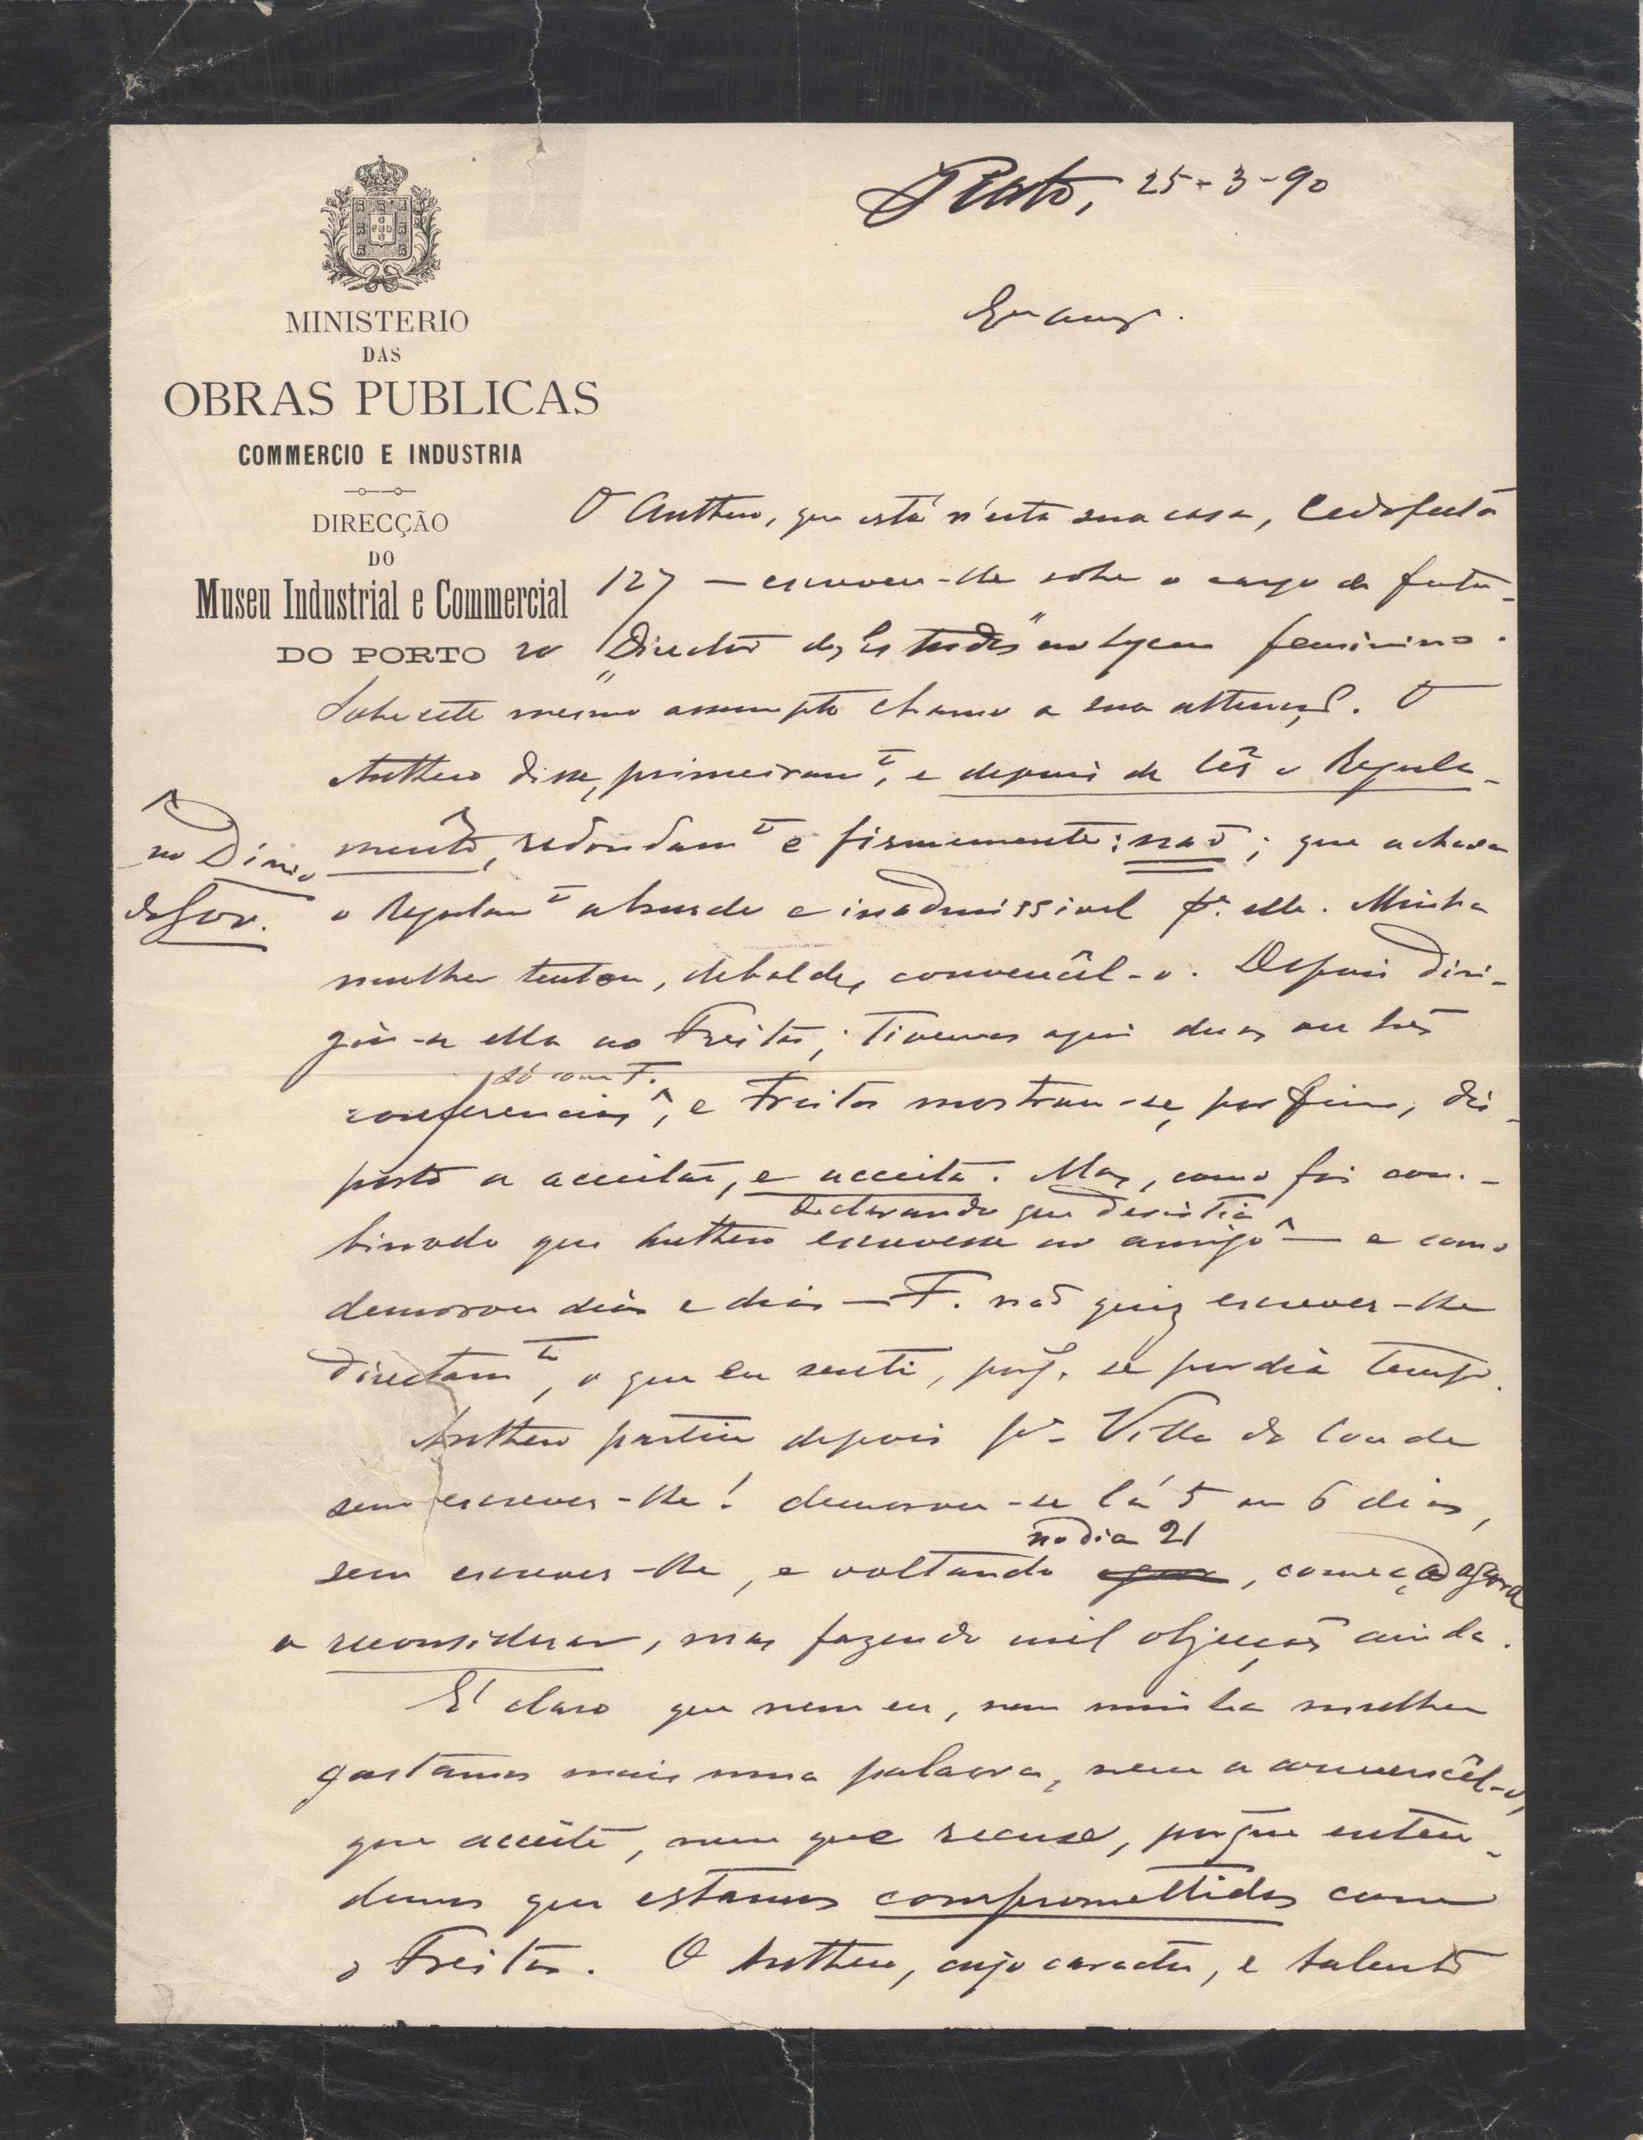 MINISTERIO
DAS
OBRAS PUBLICAS
COMMERCIO E INDUSTRIA
DIRECÇÃO
DO
Museu Industrial e Commercial
DO PORTO
Porto, 25-3-90
O Anthero, que está n'esta sua casa, Cedofeita
127 — escreveu-lhe sobre o cargo de futu-
ro "Director dos Estudos" no lyceu feminino.
Sobre este mesmo assumpto chamo a sua attenção. O
Anthero disse, primeiramte, e depois de lêr o Regula-
mento, redondamte e firmemente: não; que achava
no Diario
do Gov.
o Regulamto absurdo e inadmissivel pa. elle. Minha
mulher tentou, debalde, convencêl-o. Depois diri-
giu-se ella ao Freitas; tivemos aqui duas ou tres
só com F.
conferencias, e Freitas mostrou-se, por fim, dis-
posto a acceitar, e acceita. Mas, como foi com-
declarando que desistia
binado que Anthero escrevesse ao amigo — e como
demorou dias e dias — F. não quiz escrever-lhe
directamte, o que eu senti, porq. se perdia tempo.
Anthero partiu depois pa. Villa do Conde
sem escrever-lhe! demorou-se lá 5 ou 6 dias,
no dia 21
sem escrever-lhe, e voltando agora, começa agora
a reconsiderar, mas fazendo mil objecções ainda.
E' claro que nem eu, nem minha mulher
gastamos mais uma palavra, nem a convencêl-o,
que acceite, nem que recuse, porque enten-
demos que estamos compromettidos com
o Freitas. O Anthero, cujo caracter, e talento